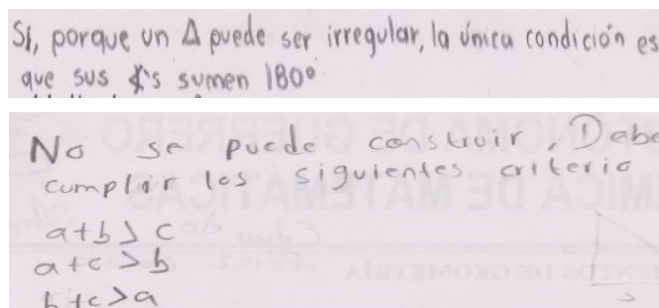 Sí, porque un Δ puede ser irregular, la única condición es
que sus ∡'s sumen 180°
No se puede construir, Debe
cumplir los siguientes criterio
a+b > c
a+c > b
b+c > a